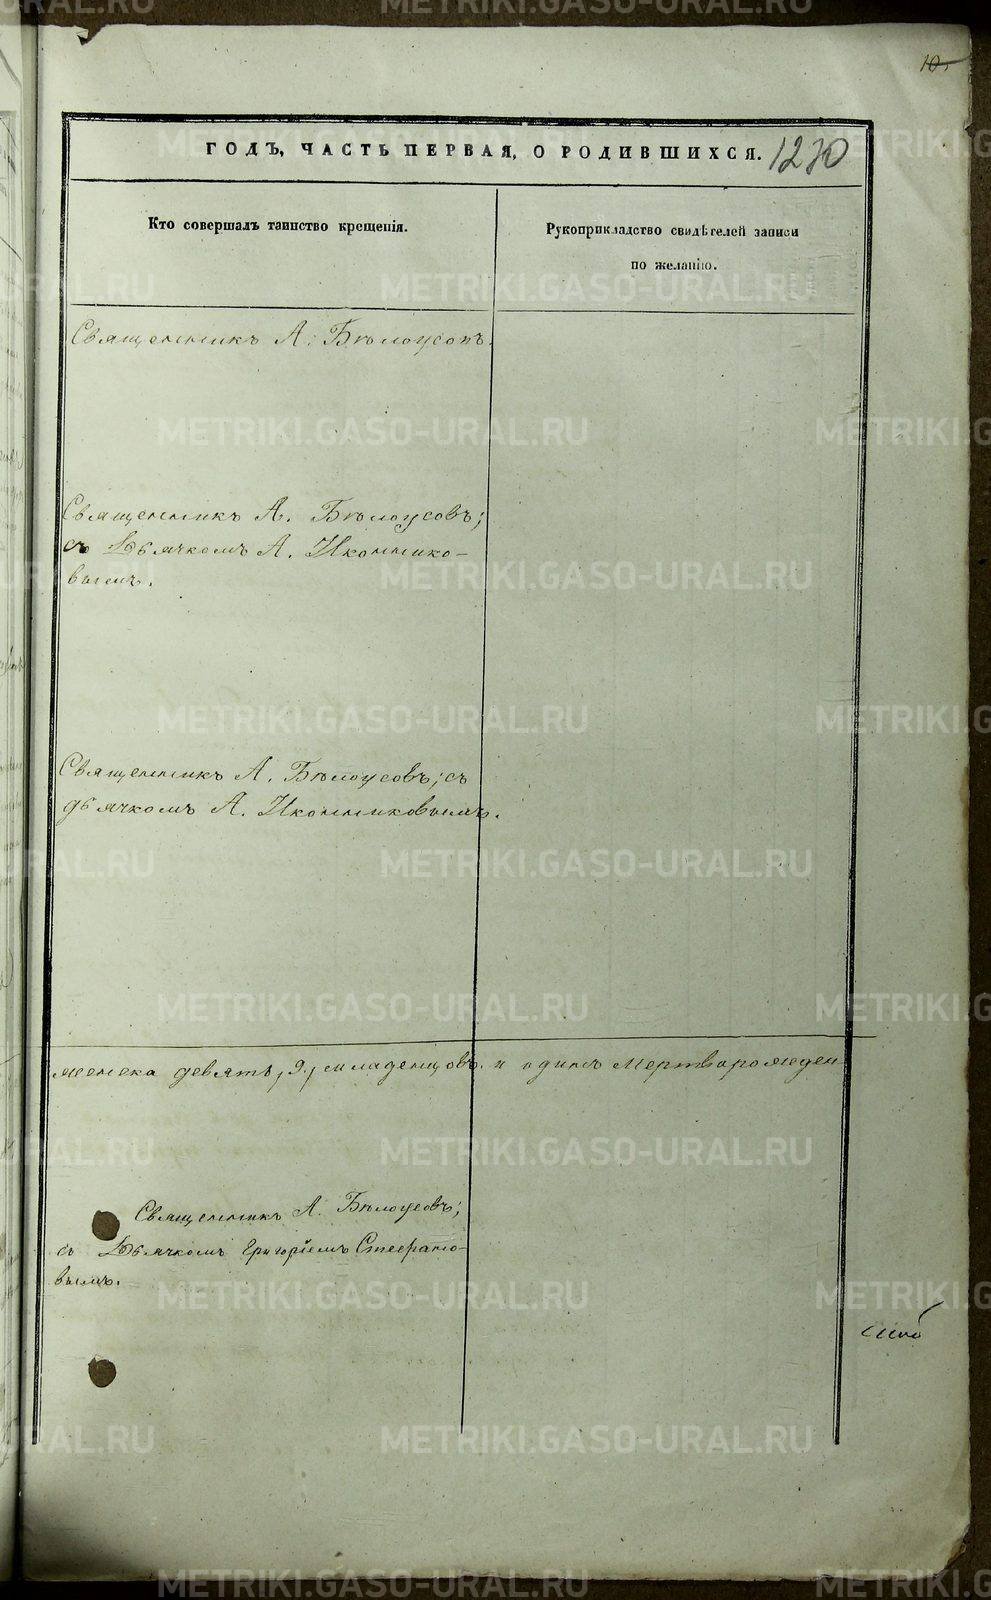 10.
ГОДЪ, ЧАСТЬ ПЕРВАЯ, О РОДИВШИХСЯ. 1270
Кто совершалъ таинство крещенія.
Рукоприкладство свидѣтелей записи
по желанію.
Священникъ А. Бѣлоусовъ.
Священникъ А. Бѣлоусовъ;
съ Дьячкомъ А. Иконнико-
вымъ.
Священникъ А. Бѣлоусовъ; съ
дьячкомъ А. Иконниковымъ.
женска девять, 9, младенцовъ и одинъ мертворожден
Священникъ А. Бѣлоусовъ;
съ Дьячкомъ Григоріемъ
вымъ.
METRIKI.GASO-URAL.RU